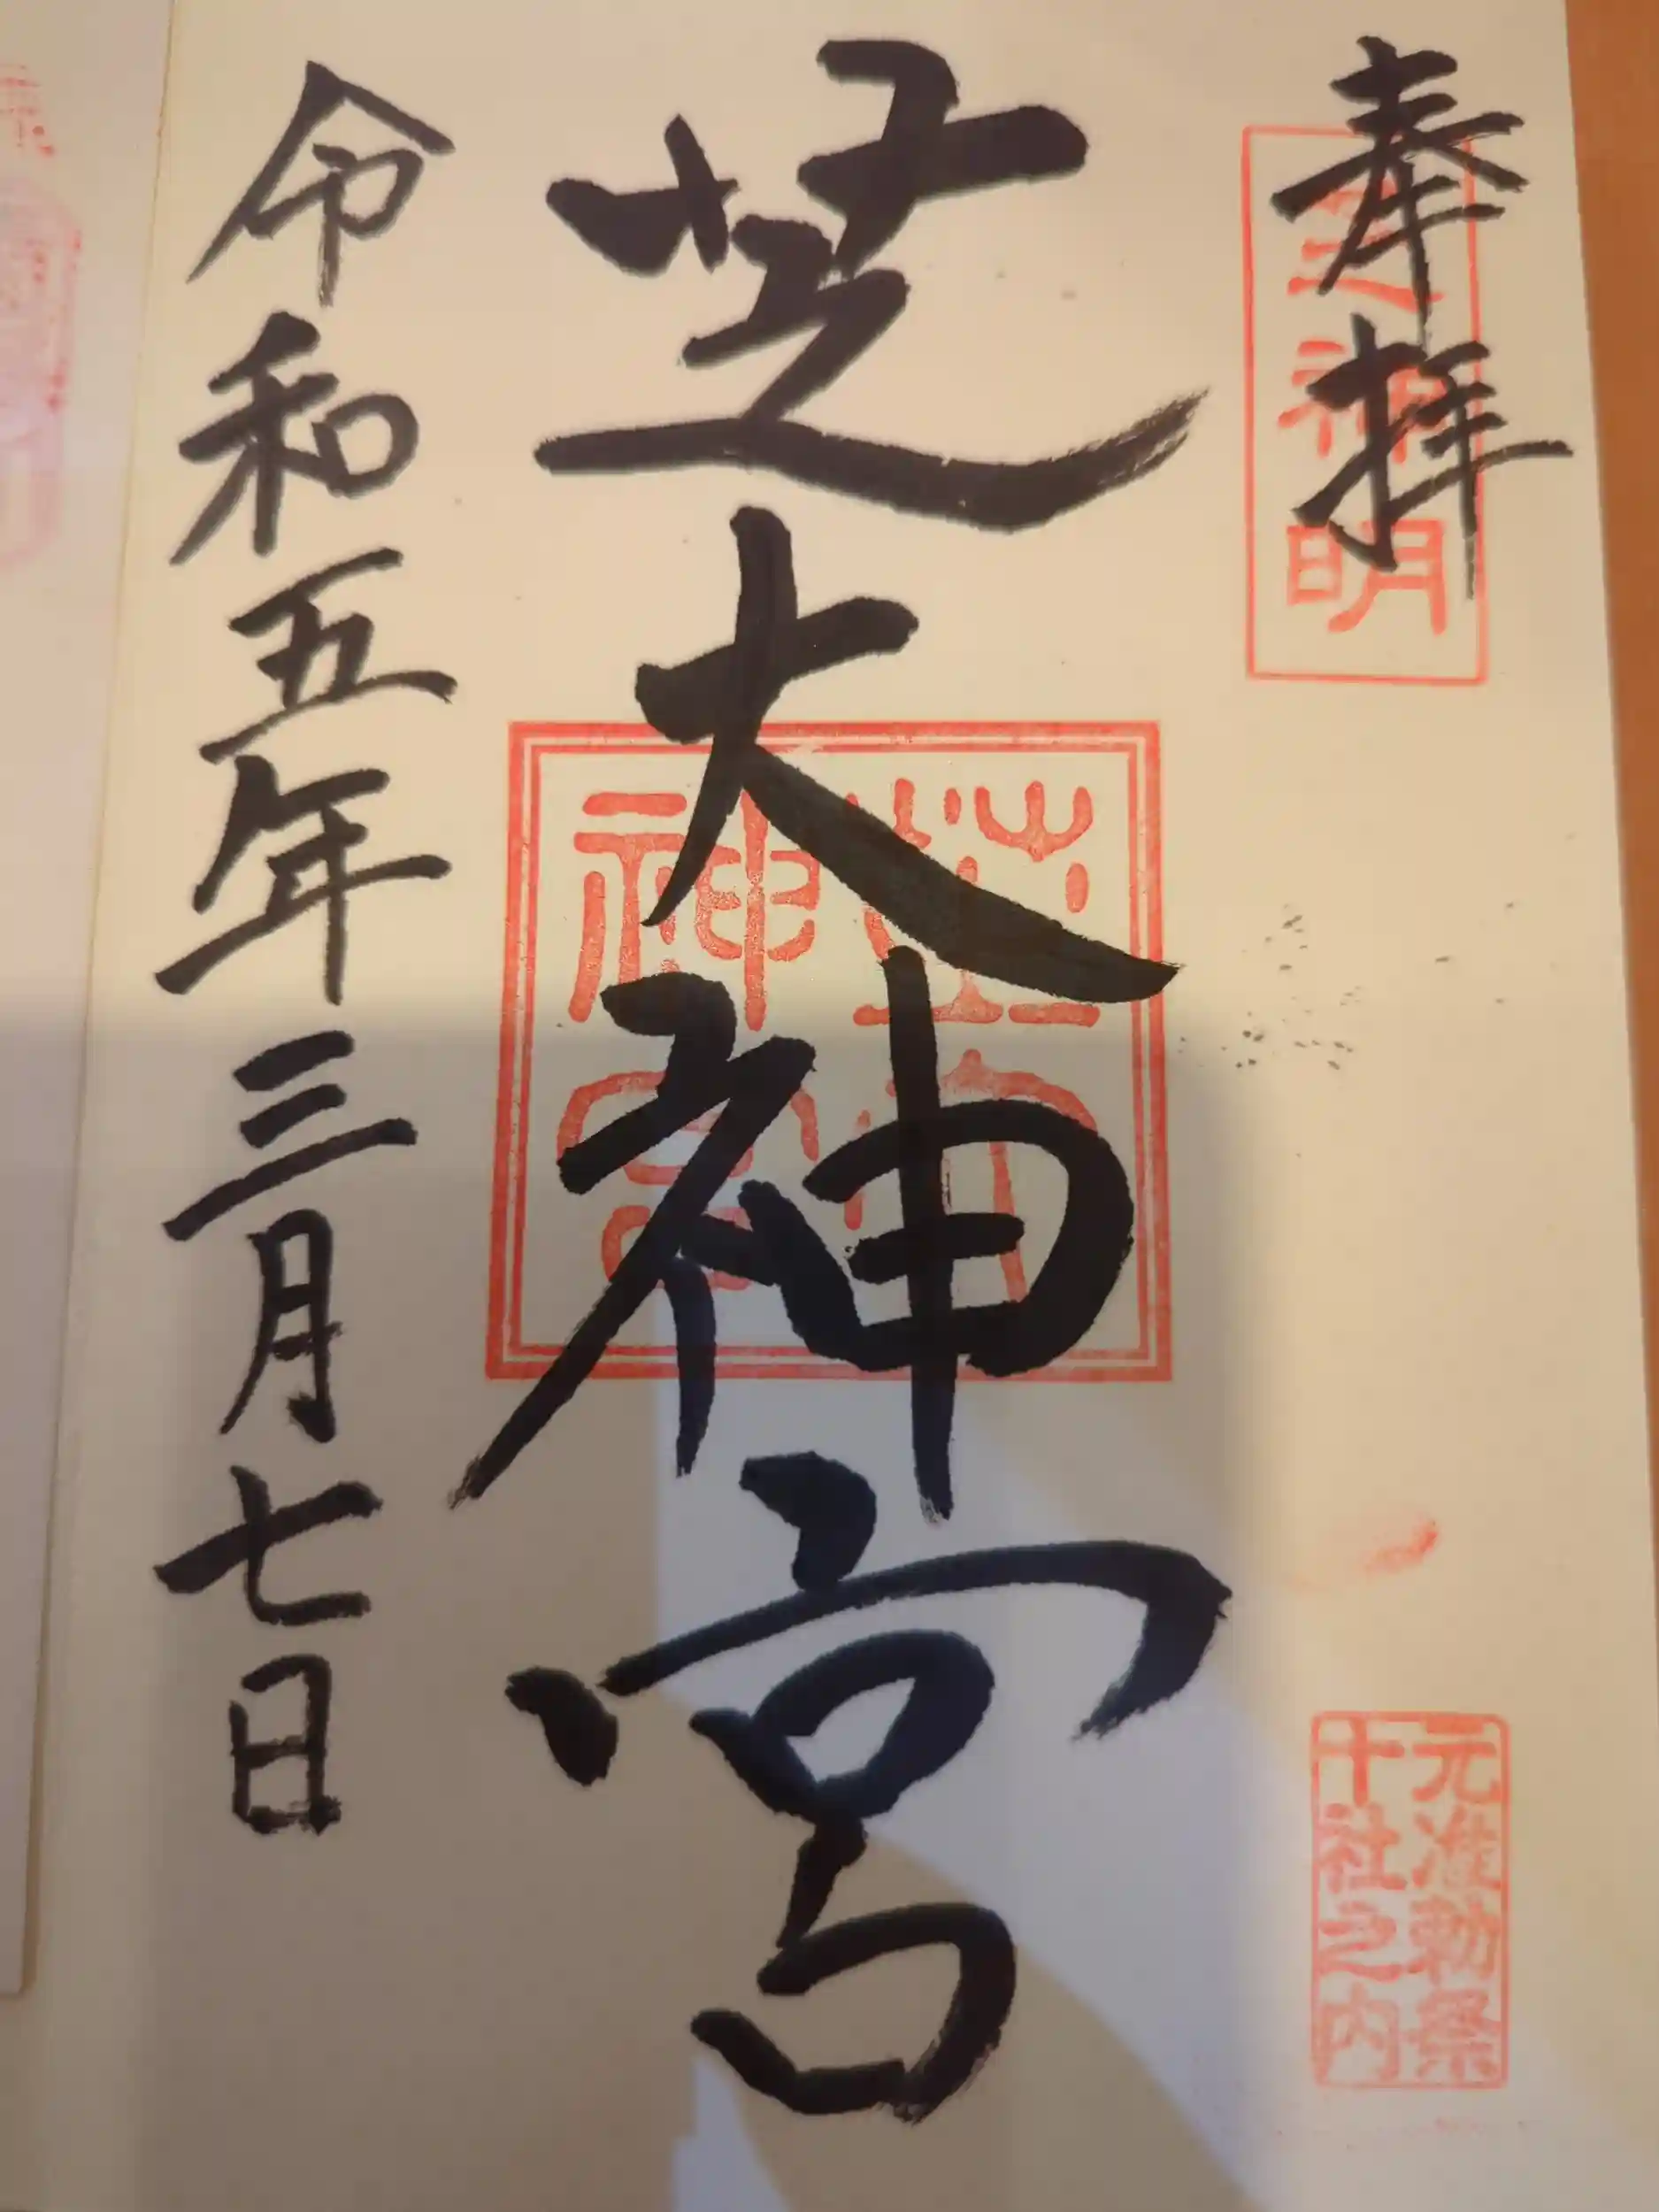 奉拝
芝神明
元准勅祭
十社之内
芝大神宮
芝大
神宮
令和五年三月七日